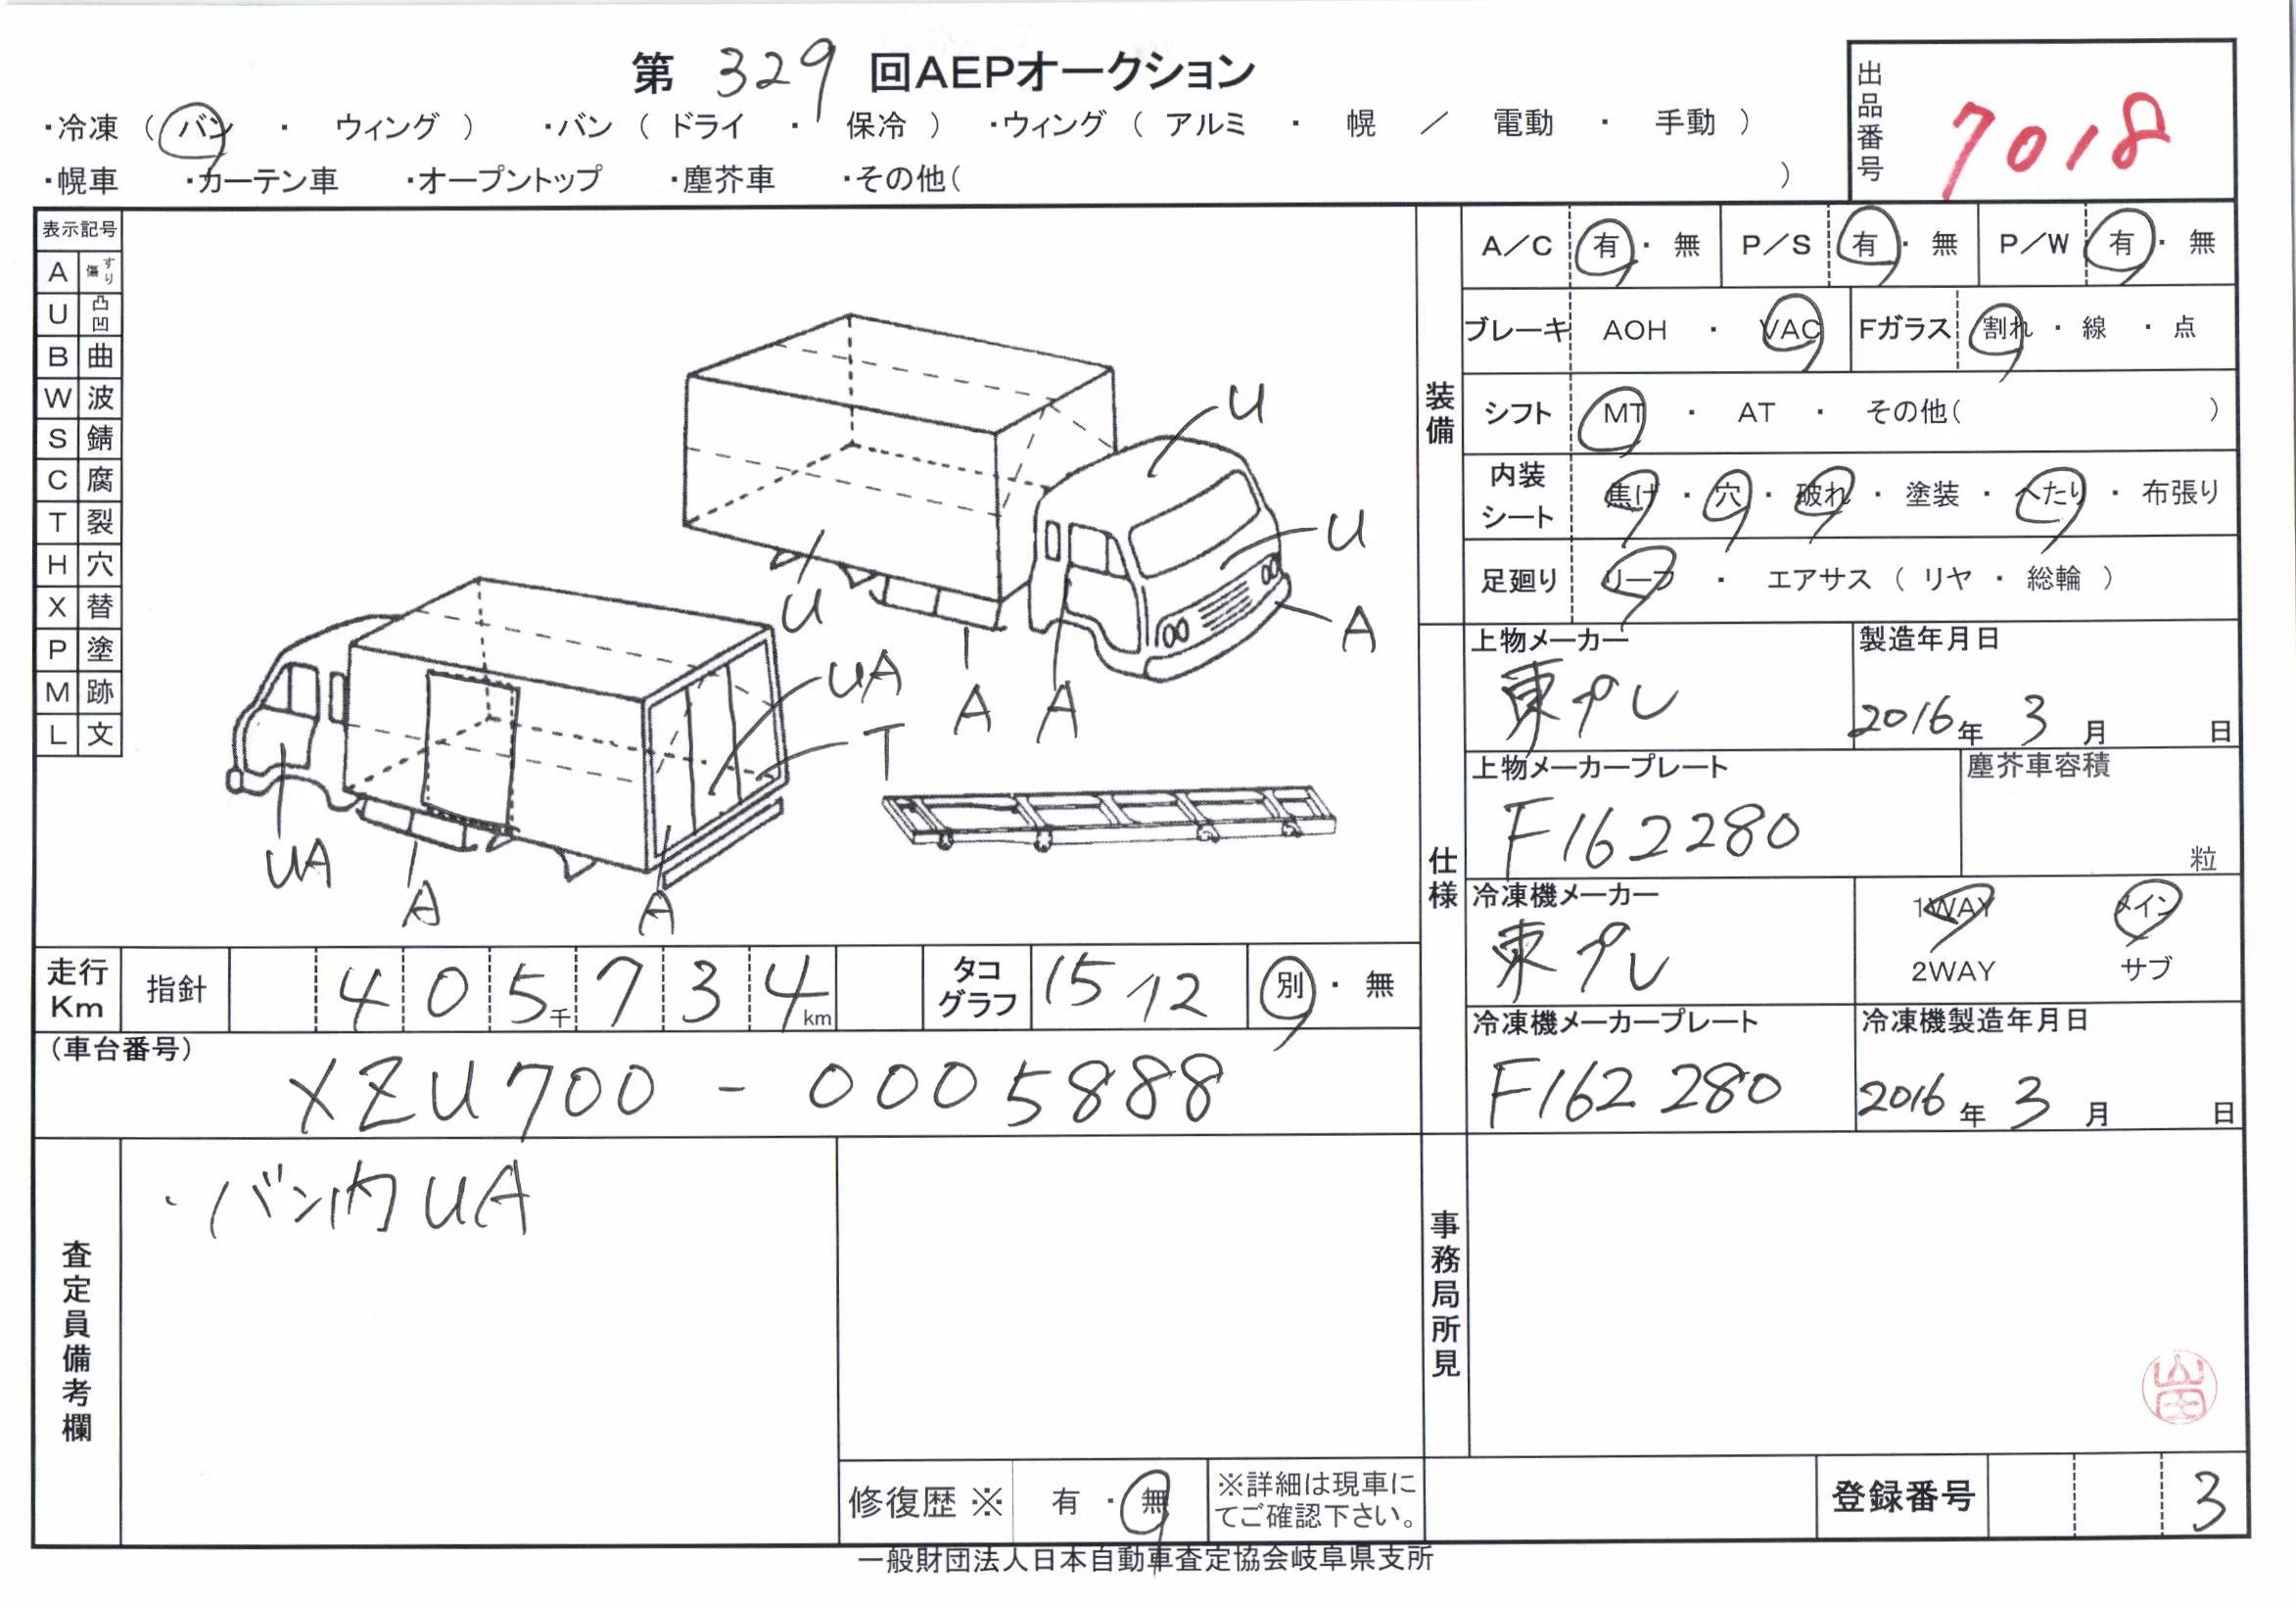 第 329 回AEPオークション
・冷凍（バン ・ ウィング） ・バン（ドライ ・ 保冷） ・ウィング（アルミ ・ 幌 ／ 電動 ・ 手動）
・幌車 ・カーテン車 ・オープントップ ・塵芥車 ・その他（ ）
出品番号 7018
表示記号
A すり傷
U 凸凹
B 曲
W 波
S 錆
C 腐
T 裂
H 穴
X 替
P 塗
M 跡
L 文
U
U
A
U
A
A
UA
T
UA
A
A
装備
A／C 有・無 P／S 有・無 P／W 有・無
ブレーキ AOH ・ VAC Fガラス 割れ・線・点
シフト MT ・ AT ・ その他（ ）
内装シート 焦げ・穴・破れ・塗装・へたり・布張り
足廻り リーフ ・ エアサス（リヤ・総輪）
仕様
上物メーカー 東プレ
製造年月日 2016年 3月 日
上物メーカープレート F162280
塵芥車容積 粒
冷凍機メーカー 東プレ
1WAY メイン
2WAY サブ
冷凍機メーカープレート F162280
冷凍機製造年月日 2016年 3月 日
走行Km 指針 405千734km タコグラフ 1512 別・無
（車台番号） XZU700-0005888
査定員備考欄
・バン内UA
事務局所見
修復歴 ※ 有・無 ※詳細は現車にてご確認下さい。
登録番号 3
一般財団法人日本自動車査定協会岐阜県支所